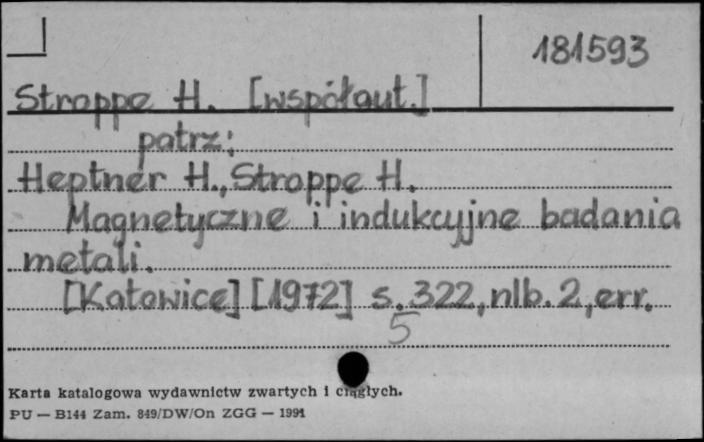 181593
Stroppe H. [współaut.]
patrz:
Heptner H., Stroppe H.
Magnetyczne i indukcyjne badania
metali.
[Katowice] [1972] s. 322, nlb. 2, err.
5
Karta katalogowa wydawnictw zwartych i ciągłych.
PU — B144 Zam. 849/DW/On ZGG — 1991